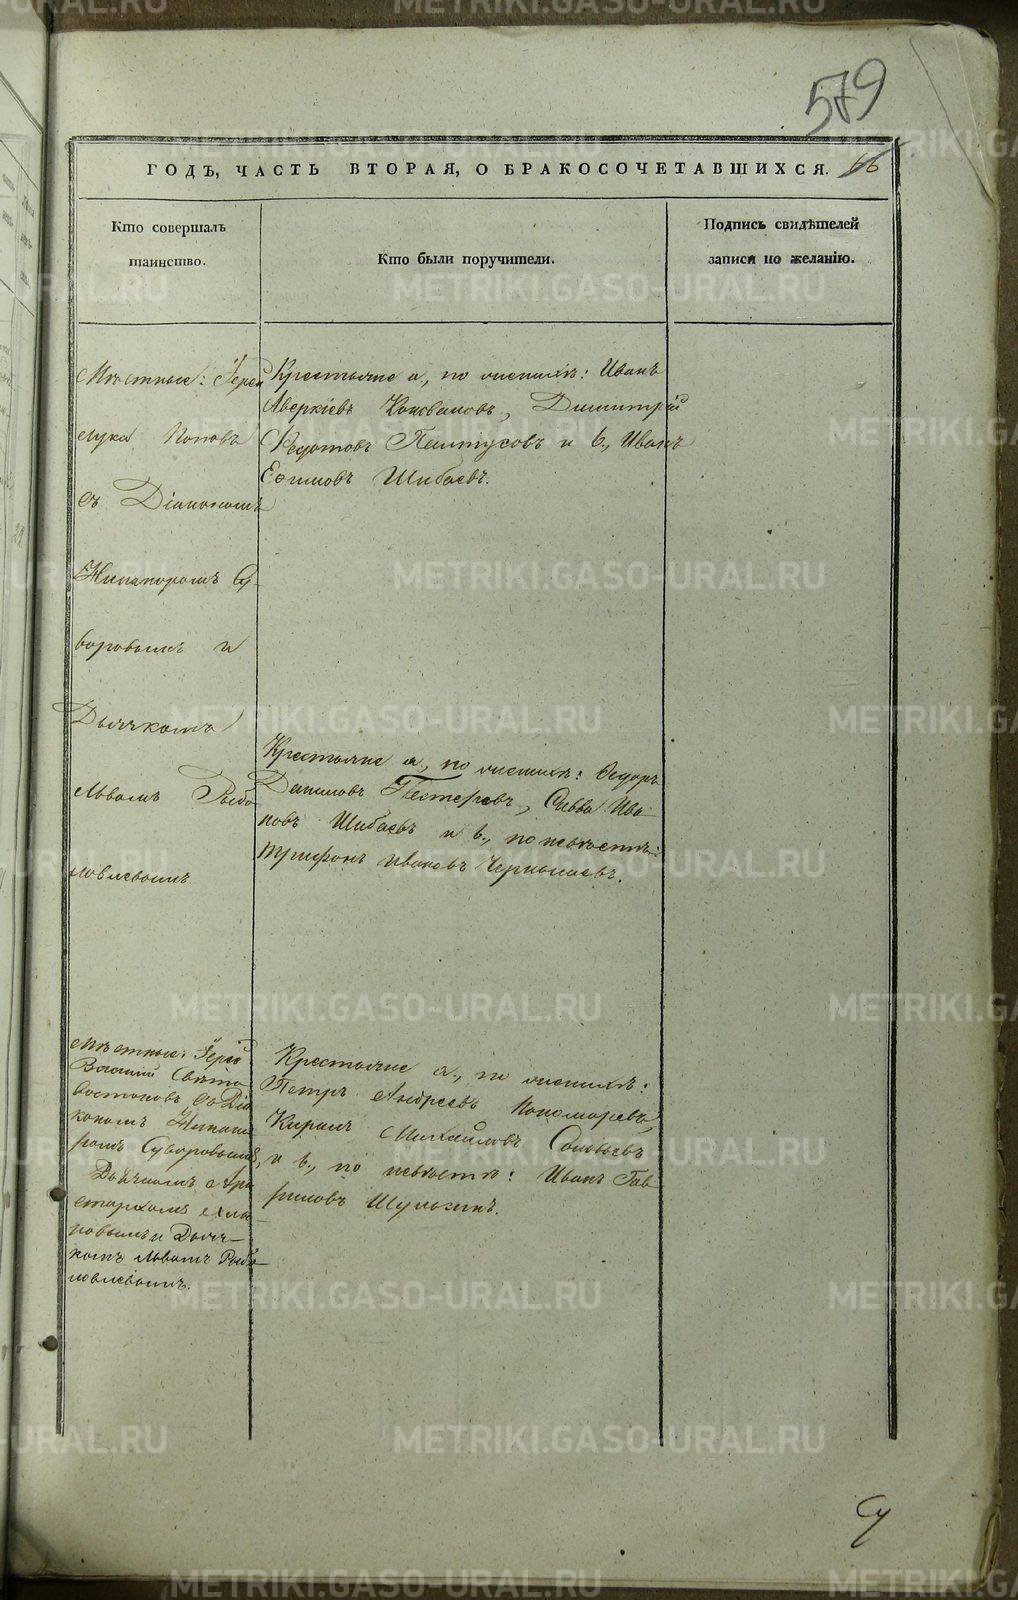 579
ГОДЪ, ЧАСТЬ ВТОРАЯ, О БРАКОСОЧЕТАВШИХСЯ.
66
Кто совершалъ
таинство.
Кто были поручители.
Подпись свидѣтелей
записи по желанію.
Мѣстные: Іерей
Лука Поповъ
съ Діакономъ
Никаноромъ Су-
воровымъ и
Дьячкомъ
Львомъ Рыбо
ловлевымъ
Крестьяне а., по женихѣ: Иванъ
Аверкіевъ Коноваловъ, Димитрій
Ѳедотовъ Пантусовъ и б., Иванъ
Ефимовъ Шибаевъ.
Крестьяне а., по женихѣ: Ѳедоръ
Даниловъ Пестеревъ, Савва Ива
новъ Шибаевъ и б., по невѣстѣ:
Трифонъ Ивановъ Чернышевъ.
Мѣстные: Іерей
Василій Свѣто
востоковъ съ Діа
кономъ Никано
ромъ Суворовымъ,
Дьячкомъ Ари
стархомъ
и Дьяч-
комъ Львомъ Рыбо
ловлевымъ.
Крестьяне а., по женихѣ:
Петръ Андреевъ Пономаревъ,
Кирилъ Михайловъ Соловьевъ
и б., по невѣстѣ: Иванъ Гав
риловъ Шульгинъ.
Су
METRIKI.GASO-URAL.RU